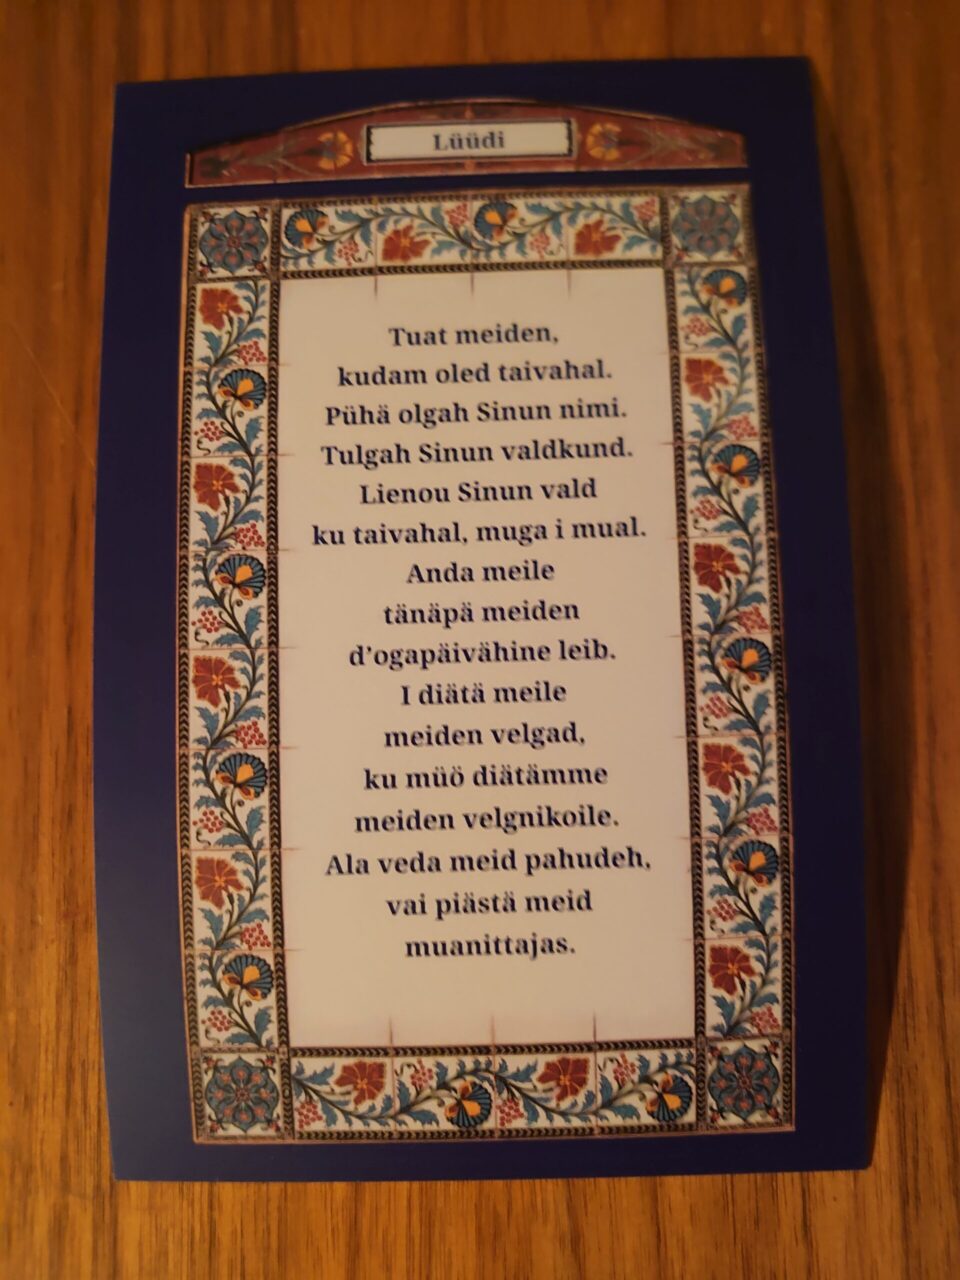 Lüüdi
Tuat meiden,
kudam oled taivahal.
Pühä olgah Sinun nimi.
Tulgah Sinun valdkund.
Lienou Sinun vald
ku taivahal, muga i mual.
Anda meile
tänäpä meiden
d'ogapäivähine leib.
I diätä meile
meiden velgad,
ku müö diätämme
meiden velgnikoile.
Ala veda meid pahudeh,
vai piästä meid
muanittajas.